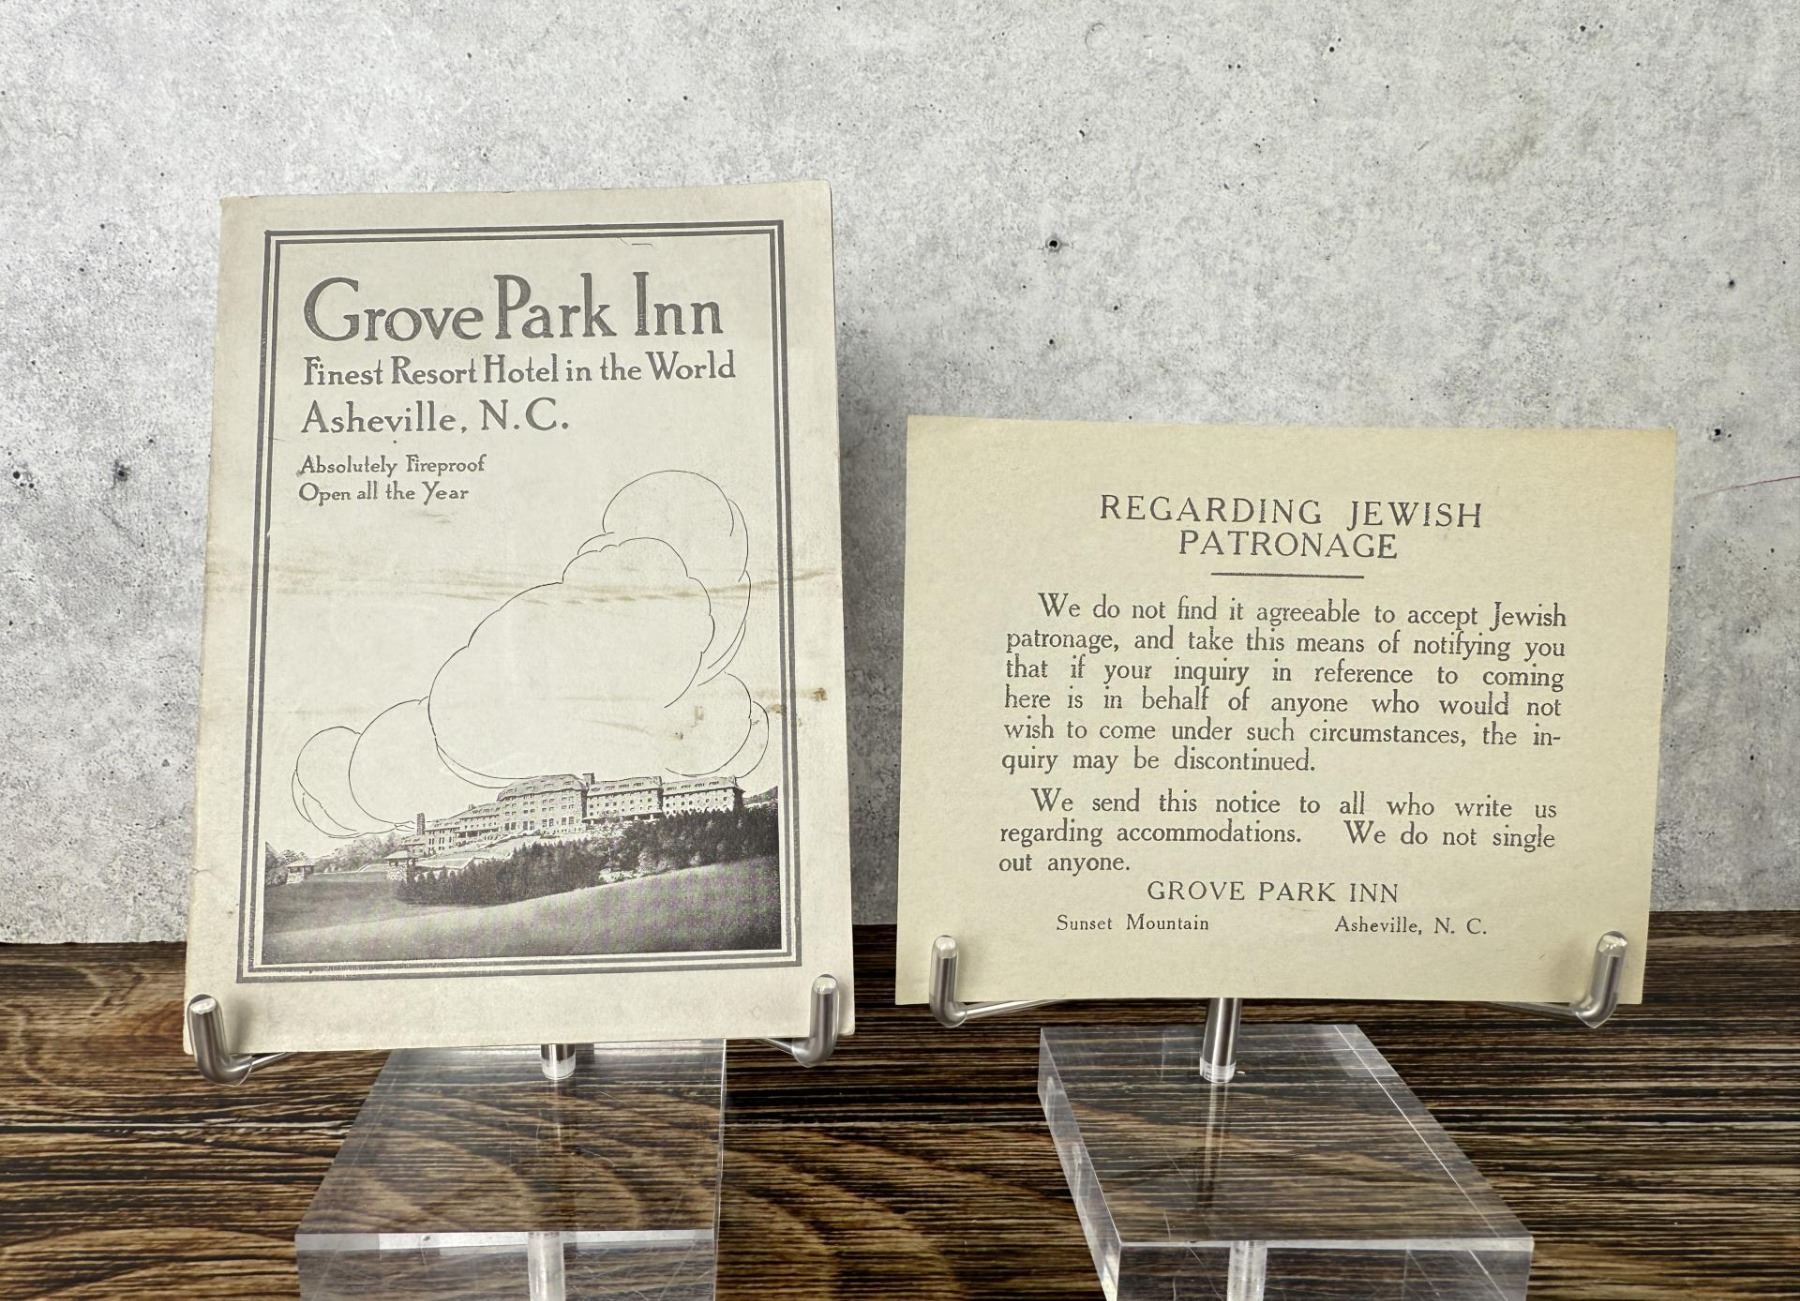 Grove Park Inn
Finest Resort Hotel in the World
Asheville, N.C.
Absolutely Fireproof
Open all the Year
REGARDING JEWISH
PATRONAGE
We do not find it agreeable to accept Jewish
patronage, and take this means of notifying you
that if your inquiry in reference to coming
here is in behalf of anyone who would not
wish to come under such circumstances, the in-
quiry may be discontinued.
We send this notice to all who write us
regarding accommodations. We do not single
out anyone.
GROVE PARK INN
Sunset Mountain Asheville, N. C.